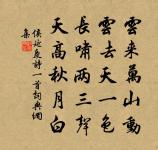 雲來萬山動
雲去天一色
長嘯兩三聲
天高秋月白
侯延慶詩一首詞典網
集